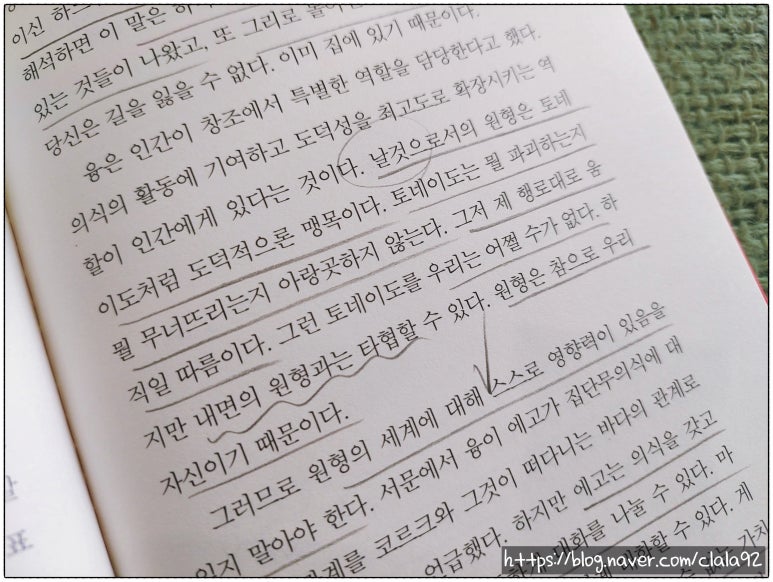 이신
해석하면 이 말은
있는 것들이 나왔고, 또 그리로
당신은 길을 잃을 수 없다. 이미 집에 있기 때문이다.
융은 인간이 창조에서 특별한 역할을 담당한다고 했다.
의식의 활동에 기여하고 도덕성을 최고도로 확장시키는 역
할이 인간에게 있다는 것이다. 날것으로서의 원형은 토네
이도처럼 도덕적으론 맹목이다. 토네이도는 뭘 파괴하는지
뭘 무너뜨리는지 아랑곳하지 않는다. 그저 제 행로대로 움
직일 따름이다. 그런 토네이도를 우리는 어쩔 수가 없다. 하
지만 내면의 원형과는 타협할 수 있다. 원형은 참으로 우리
자신이기 때문이다.
그러므로 원형의 세계에 대해 스스로 영향력이 있음을
잊지 말아야 한다. 서문에서 융이 에고가 집단무의식에 대
코르크와 그것이 떠다니는 바다의 관계로
언급했다. 하지만 에고는 의식을 갖고
대화를 나눌 수 있다. 마
대화할 수 있다. 게
가치
표
https://blog.naver.com/clala92